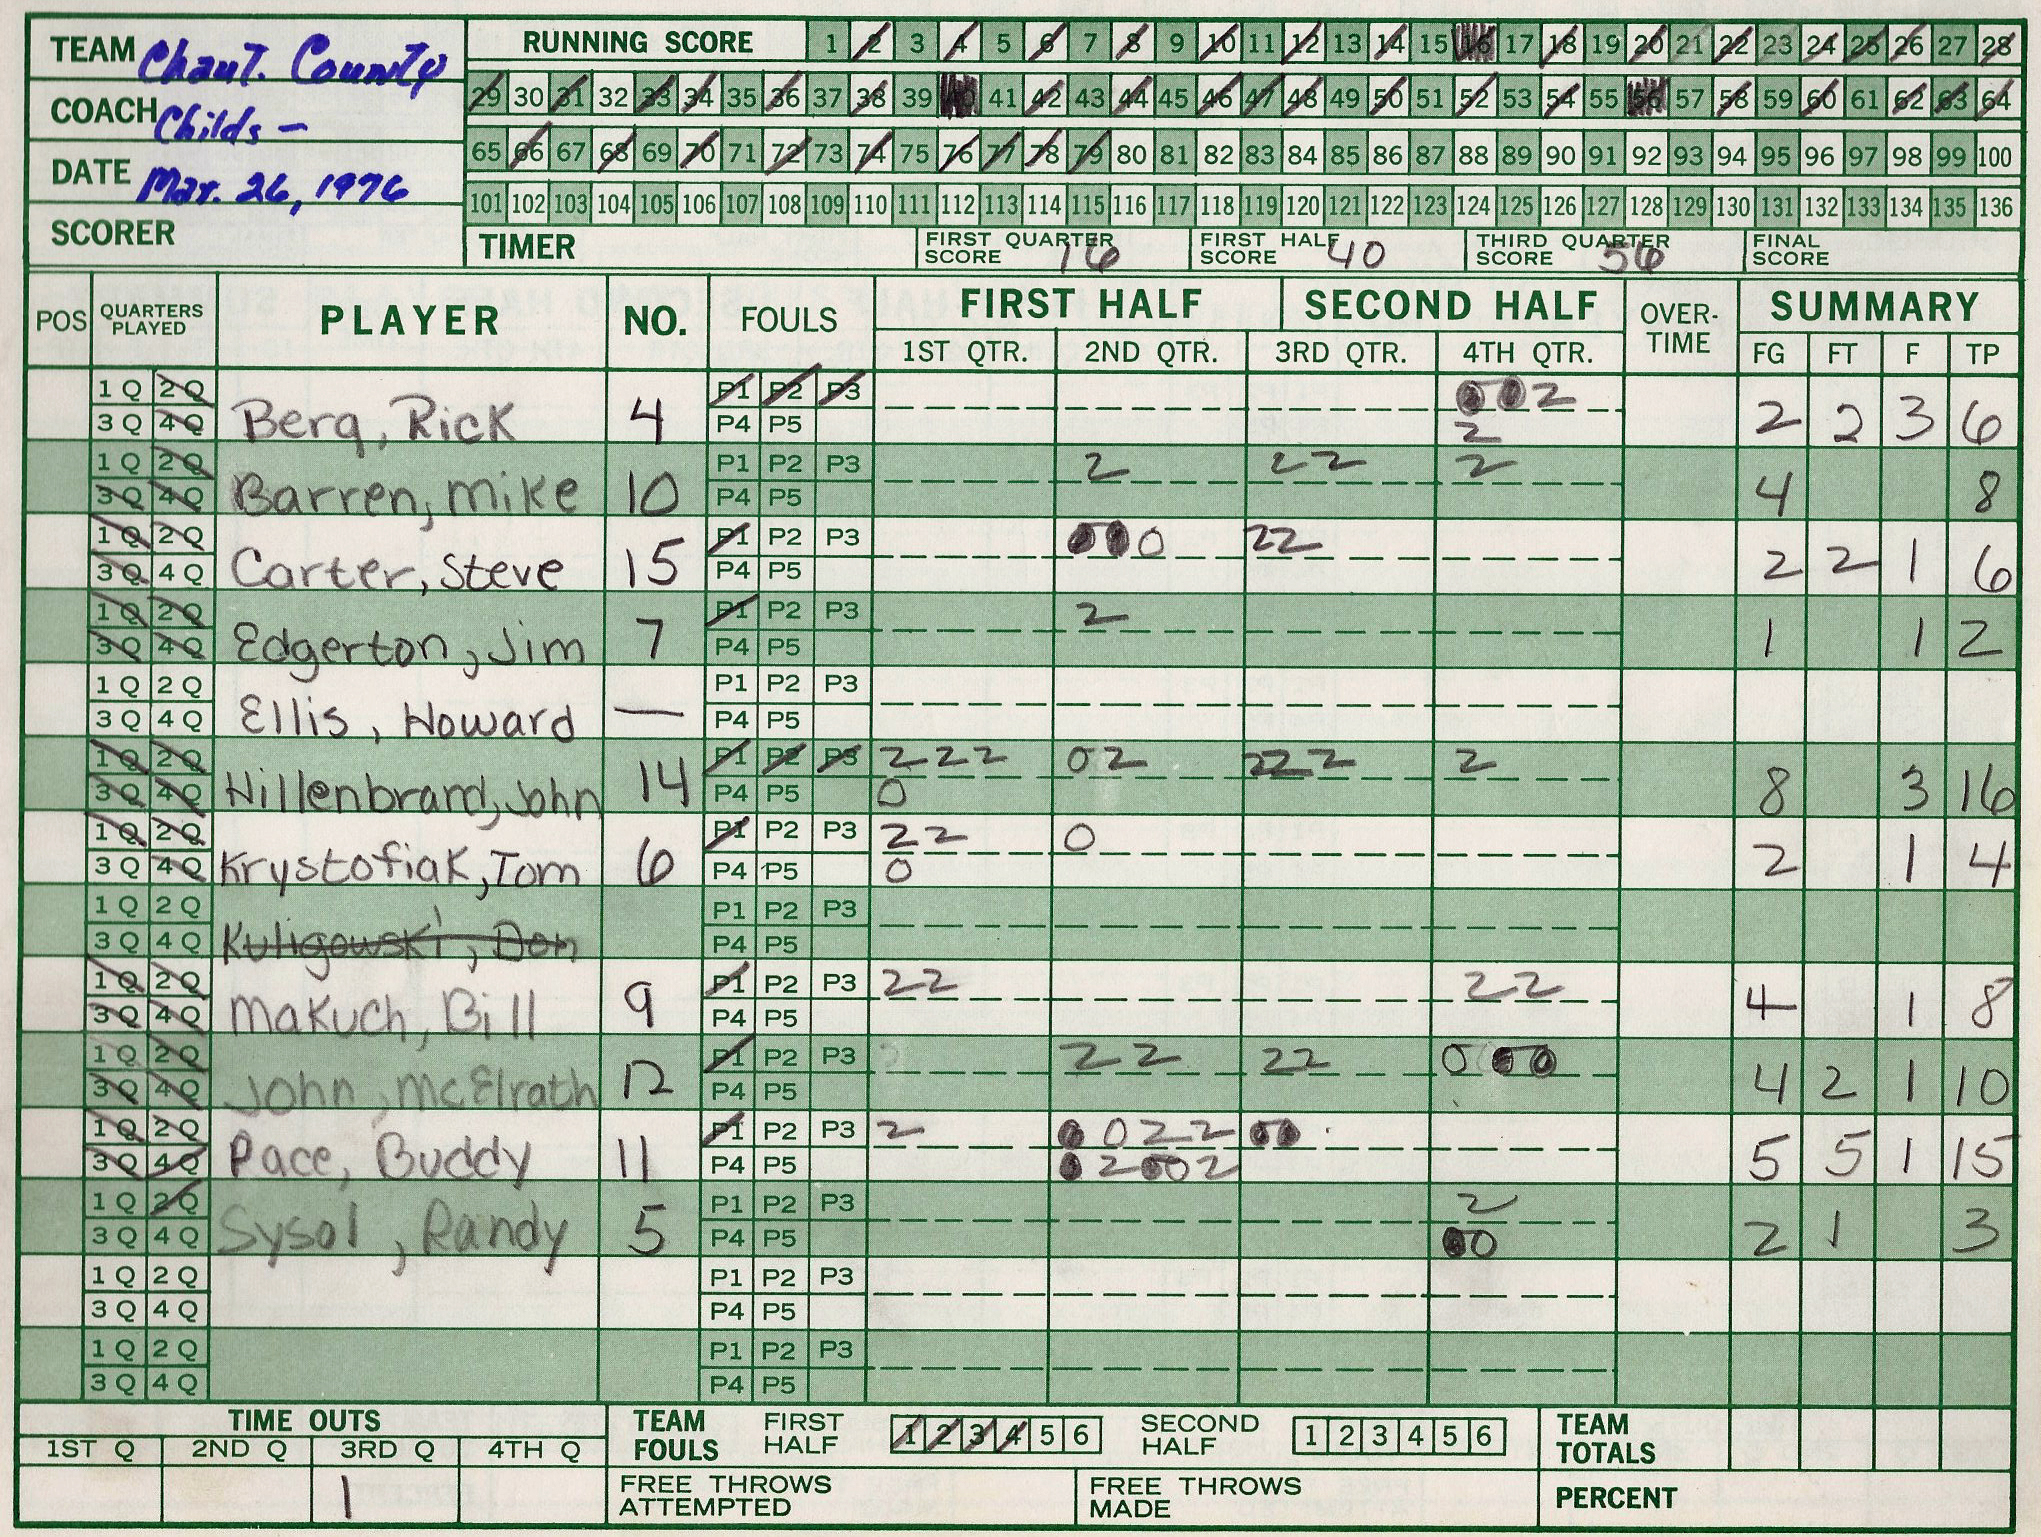 TEAM Chaut. County
COACH Childs -
DATE Mar. 26, 1976
SCORER
RUNNING SCORE 1 2 3 4 5 6 7 8 9 10 11 12 13 14 15 16 17 18 19 20 21 22 23 24 25 26 27 28
29 30 31 32 33 34 35 36 37 38 39 40 41 42 43 44 45 46 47 48 49 50 51 52 53 54 55 56 57 58 59 60 61 62 63 64
65 66 67 68 69 70 71 72 73 74 75 76 77 78 79 80 81 82 83 84 85 86 87 88 89 90 91 92 93 94 95 96 97 98 99 100
101 102 103 104 105 106 107 108 109 110 111 112 113 114 115 116 117 118 119 120 121 122 123 124 125 126 127 128 129 130 131 132 133 134 135 136
TIMER FIRST QUARTER SCORE 16 FIRST HALF SCORE 40 THIRD QUARTER SCORE 56 FINAL SCORE
POS QUARTERS PLAYED PLAYER NO. FOULS FIRST HALF SECOND HALF OVER-TIME SUMMARY
1ST QTR. 2ND QTR. 3RD QTR. 4TH QTR. FG FT F TP
1Q 2Q P1 P2 P3 0 0 2
3Q 4Q Berg, Rick 4 P4 P5 2 2 2 3 6
1Q 2Q P1 P2 P3 2 2 2 2
3Q 4Q Barren, Mike 10 P4 P5 4 8
1Q 2Q P1 P2 P3 0 0 0 2 2
3Q 4Q Carter, Steve 15 P4 P5 2 2 1 6
1Q 2Q P1 P2 P3 2
3Q 4Q Edgerton, Jim 7 P4 P5 1 1 2
1Q 2Q P1 P2 P3
3Q 4Q Ellis, Howard — P4 P5
1Q 2Q P1 P2 P3 2 2 2 0 2 2 2 2 2
3Q 4Q Hillenbrand, John 14 P4 P5 0 8 3 16
1Q 2Q P1 P2 P3 2 2 0
3Q 4Q Krystofiak, Tom 6 P4 P5 0 2 1 4
1Q 2Q P1 P2 P3
3Q 4Q Kuligowski, Don P4 P5
1Q 2Q P1 P2 P3 2 2 2 2
3Q 4Q Makuch, Bill 9 P4 P5 4 1 8
1Q 2Q P1 P2 P3 2 2 2 2 0 0 0
3Q 4Q John, McElrath 12 P4 P5 4 2 1 10
1Q 2Q P1 P2 P3 2 0 0 2 2 0 0
3Q 4Q Pace, Buddy 11 P4 P5 0 2 0 0 2 5 5 1 15
1Q 2Q P1 P2 P3 2
3Q 4Q Sysol, Randy 5 P4 P5 0 0 2 1 3
1Q 2Q P1 P2 P3
3Q 4Q P4 P5
1Q 2Q P1 P2 P3
3Q 4Q P4 P5
TIME OUTS TEAM FOULS FIRST HALF 1 2 3 4 5 6 SECOND HALF 1 2 3 4 5 6 TEAM TOTALS
1ST Q 2ND Q 3RD Q 4TH Q
1 FREE THROWS ATTEMPTED FREE THROWS MADE PERCENT